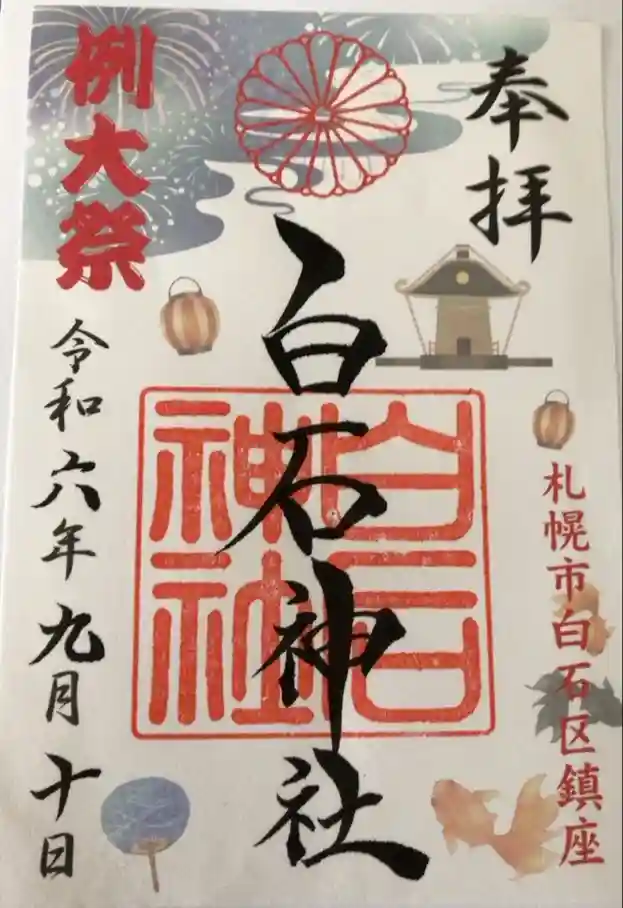 奉拝
札幌市白石区鎮座
白石神社
白石神社
例大祭
令和六年九月十日